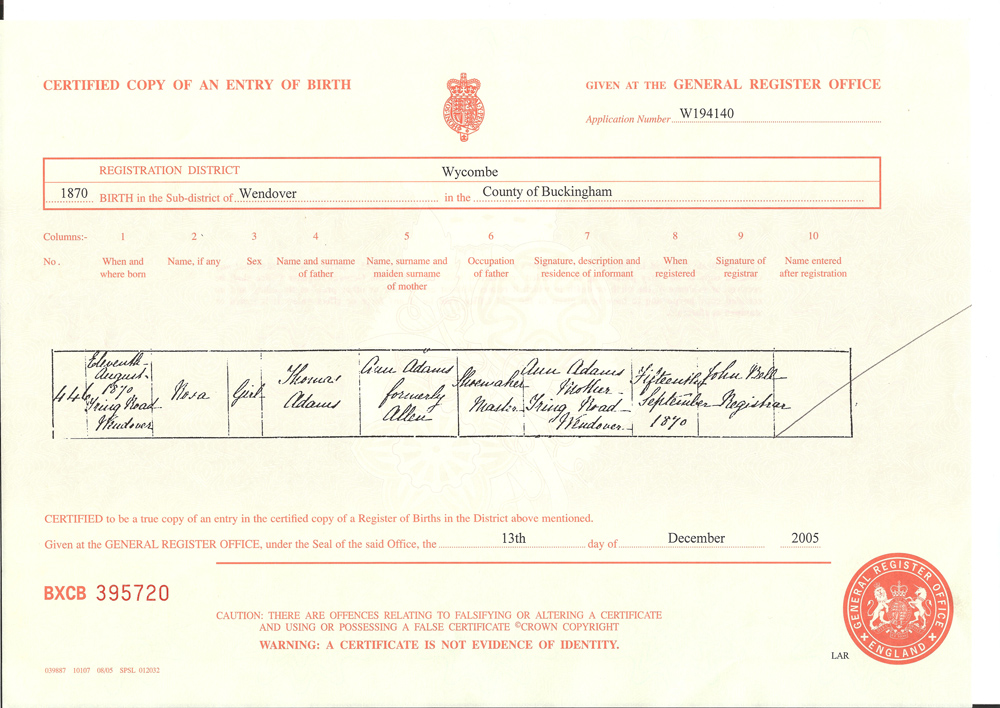 CERTIFIED COPY OF AN ENTRY OF BIRTH
GIVEN AT THE GENERAL REGISTER OFFICE
Application Number W194140
REGISTRATION DISTRICT Wycombe
1870 BIRTH in the Sub-district of Wendover in the County of Buckingham
Columns:- 1 2 3 4 5 6 7 8 9 10
No. When and where born
Name, if any
Sex
Name and surname of father
Name, surname and maiden surname of mother
Occupation of father
Signature, description and residence of informant
When registered
Signature of registrar
Name entered after registration
446
Eleventh
August
1870
Tring Road
Wendover
Rosa
Girl
Thomas
Adams
Ann Adams
formerly
Allen
Shoemaker
Master
Ann Adams
Mother
Tring Road
Wendover
Fifteenth
September
1870
John Bell
Registrar
CERTIFIED to be a true copy of an entry in the certified copy of a Register of Births in the District above mentioned.
Given at the GENERAL REGISTER OFFICE, under the Seal of the said Office, the 13th day of December 2005
BXCB 395720
CAUTION: THERE ARE OFFENCES RELATING TO FALSIFYING OR ALTERING A CERTIFICATE
AND USING OR POSSESSING A FALSE CERTIFICATE ©CROWN COPYRIGHT
WARNING: A CERTIFICATE IS NOT EVIDENCE OF IDENTITY.
GENERAL REGISTER OFFICE
ENGLAND
LAR
039887 10107 08/05 SPSL 012032